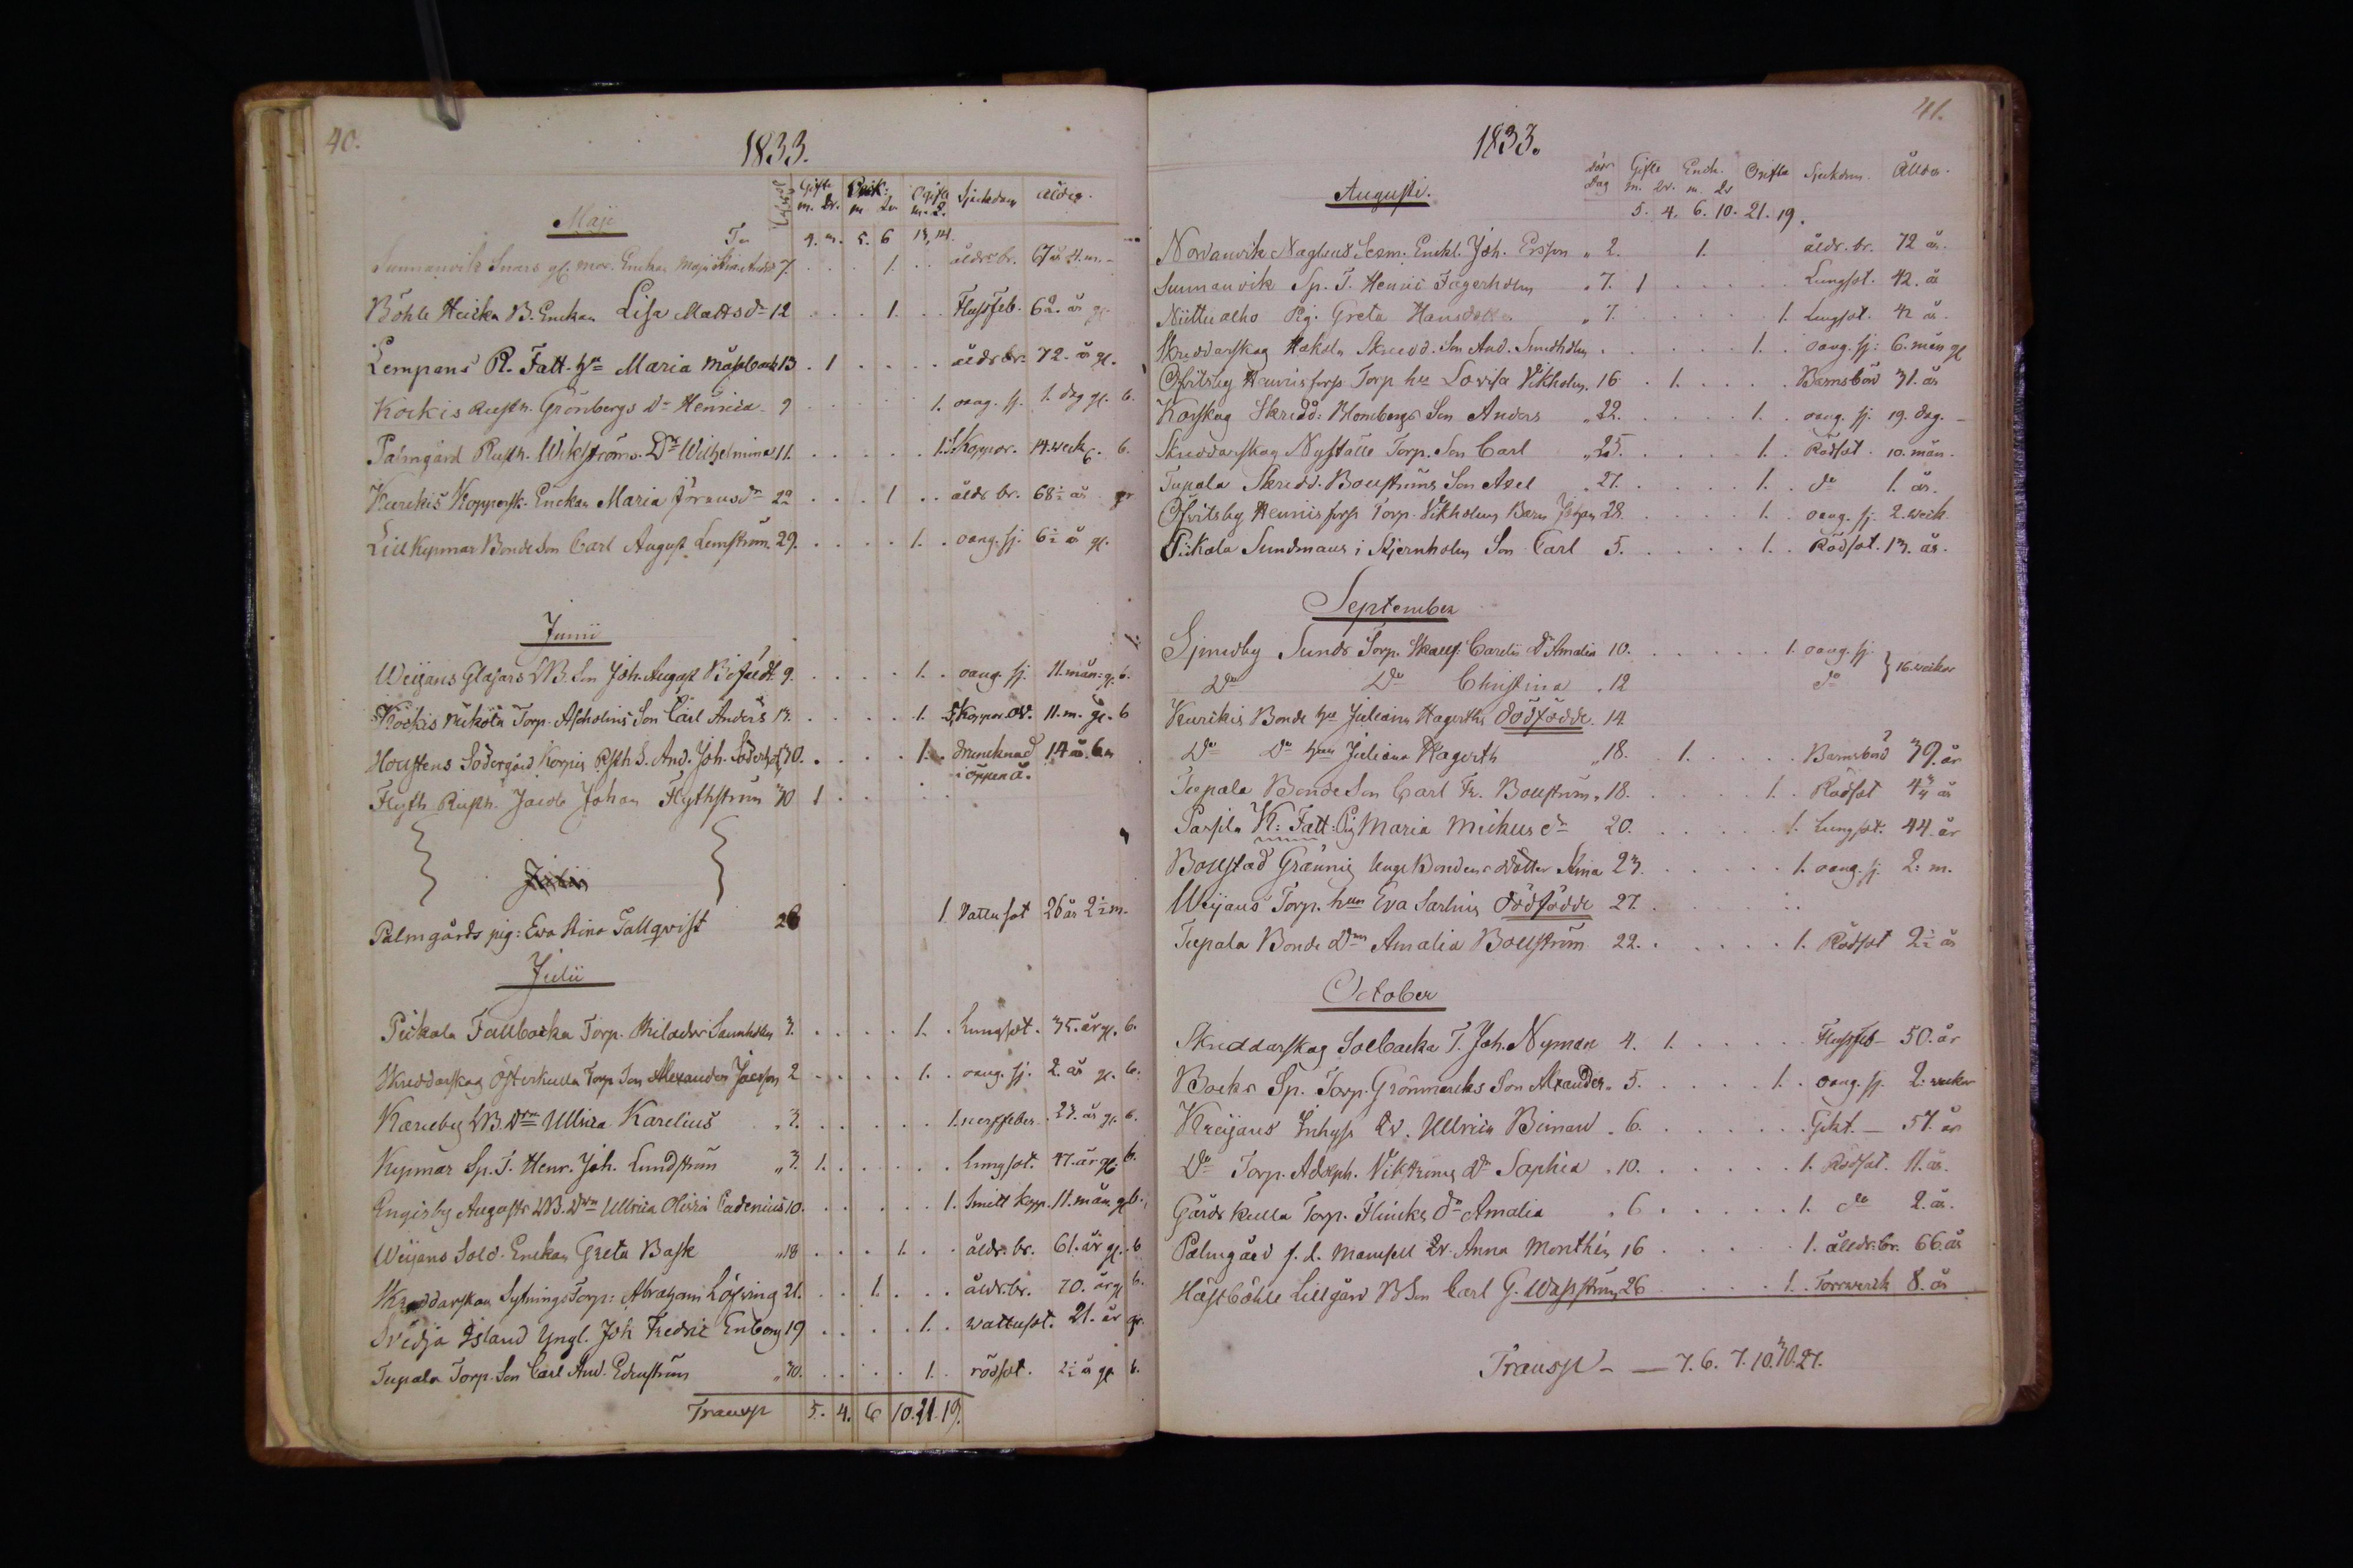 40.
1833.
Gifte Enk: Ogifta Sjukdom ålder.
m. Qv. m Qv m. Q.
Maji
4. 3. 5. 6 13, 14.
Sunnanvik Snars gl. mor. Enkan Maja Stina 7. . . . 1. . . åldr. br. 67 år 4. m. -
Böhle Heicka B. Enkan Lisa Mattsdr 12 . . . 1. . . Flussfeb. 62. år gl.
Lempans R. Fatt. hu Maria 13 . 1 . . . . åldr br. 72. år gl.
Kockis Rusth. Grönbergs Dr Henrica. 9 . . . . . 1. oang. sj. 1. dag gl. b.
Palmgård Rusth. Wikströms Dr Wilhelmina 11. . . . . . 1. Koppor. 14. veck g. b.
Kurckis Koppersk. Enkan Maria Göransdr 22 . . . 1 . . åldr br. 68 1/2 år gr
Lill Kyrmar Bonde Son Carl August Lemström. 29. . . . . 1. . oang. sj. 6 1/2 å gl.
Junii
Weijans Glasars LB. Son Joh. August 9. . . . . 1. . oang. sj. 11. mån: g. b.
Kockis Nickola Torp. Asholms Son Carl Anders 13. . . . . 1. Koppor. 11. m. gl. b
Houstens Södergård Korpis Rsth S. And. Joh. 30. . . . . 1. . Drunknad 14 å. 6 m
i öppen å.
Flyth Rusth. Jacob Johan Flythström 30 1 . . . .
Julii
Palmgårds pig: Eva Stina Tallqvist 26 1. Vattusot 26 år 2 1/2 m.
Julii
Pickala Fallbacka Torp. Sannholm 3. . . . . 1. . Lungsot. 35. år gl. b.
Skreddarskog Österkulla Torp. Son Alexander 2 . . . . 1. . oang. sj. 2. år gl. b.
Karuby LB. Drn Ullrica Karelius „ 3. . . . . . 1. nerffeber. 23. år gl. b.
Kyrmar Sp. T. Henr. Joh. Lundström „ 3. 1. . . . . . Lungsot. 47. år gl. b.
Engisby Augustr LB. Drn Ullrica Olivia Cadenius 10. . . . . . 1. Smitt Kopp. 11. mån gl b.
Weijans Sold. Enkan Greta Bask „ 18 . . . 1. . . åldr. br. 61. år gl. b
Skreddarskog Sytnings Torp: Abraham Löfving 21. . . 1. . . . åldr. br. 70. år gl b.
Svidja Island Yngl. Joh Fredric Enberg 19 . . . . 1. . wattusot. 21. år gr.
Tupala Torp. Son Carl And. Edenström „ 30. . . . . 1. . rödsot. 2 1/2 å gl. b.
Transp 5. 4. 6 10. 21. 19.
41.
1833.
Augusti.
dag Gifte Enck. Ogifta Sjukdom. Ållder.
m. Qv. m. Qv
5. 4. 6. 10. 21. 19.
Nordanvik Naglens Sexm. Enkl. Joh. Ersson „ 2. 1. åldr. br. 72 år.
Sunnanvik Sp. T. Henric Fagerholm „ 7. 1 . . . . . Lungsot. 42. å
Niittu alho Pig. Greta Hansdotter „ 7. . . . . . 1. Lungsot. 42 år.
Skreddarskog Skredd. Son And. Sundholm . . . . . 1. . oang. sj: 6. mån gl
Ofvitsby Hennisfors Torp hu Lovisa Vikholm. 16 . 1. . . . . Barnsbörd 31. år
Korskog Skredd: Blombergs Son Anders „ 22. . . . . 1. . oang. sj. 19. dag. -
Skreddarskog Nyställe Torp. Son Carl „ 25. . . . . 1. . Rödsot. 10. mån.
Tupala Skredd. Bouströms Son Axel . 27. . . . . 1. . do 1. år.
Ofvitsby Hennisfors Torp. Vikholms Barn Johan 28. . . . . 1. . oang. sj. 2. weck.
Pickala Sundmans i Stjernholm Son Carl 5. . . . . 1. . Rödsot. 13. år.
September
Sjundby Sunds Torp. Carelii Dr Amalia 10. . . . . . 1. oang. sj.
Do Do Christina . 12 do } 16. weckor
Kurckis Bonde hu Juliana Hagerths dödfödde. 14.
Do Do hun Juliana Hagerth „ 18. . 1. . . . . Barnsbörd 39. år
Tupala Bonde Son Carl Fr. Bouström. „ 18. . . . . 1. . Rödsot 4 3/4 år
Parsila K: Fatt: Pig Maria Mickusdr 20. . . . . . 1. Lungsot. 44. år
Boustad Grännis Unge Bondens dotter Stina 23. . . . . . 1. oang. sj. 2. m.
Weijans Torp. hun Eva Sarlins dödfödde 27. . . . . . .
Tupala Bonde Drn Amalia Bouström 22. . . . . . 1. Rödsot 2 1/2 år
October
Skreddarskog Solbacka T. Joh. Nyman 4. 1. . . . . . Flussfeb - 50. år
Backs Sp. Torp. Grönmarcks Son Alexander. 5. . . . . 1. . oang. sj. 2. weckor
Kreijans Inhys Qv. Ullrica Biman . 6. . . . . . . Gikt. - 57. år
Do Torp. Adolph. Vikströms Dr Sophia . 10. . . . . . 1. Rödsot. 11. år.
Gårdskulla Torp. Flincks Dr Amalia . 6 . . . . . 1. do 2. år.
Palmgård f. d. Mamsell Qv. Anna Monthén 16 . . . . . 1. ålldr. br. 66. år
Hästböhle Lillgård B Son Carl G. Wasström 26 . . . . 1. . Torrwerck 8. år
Transp - — 7. 6. 7. 10. 30. 27.